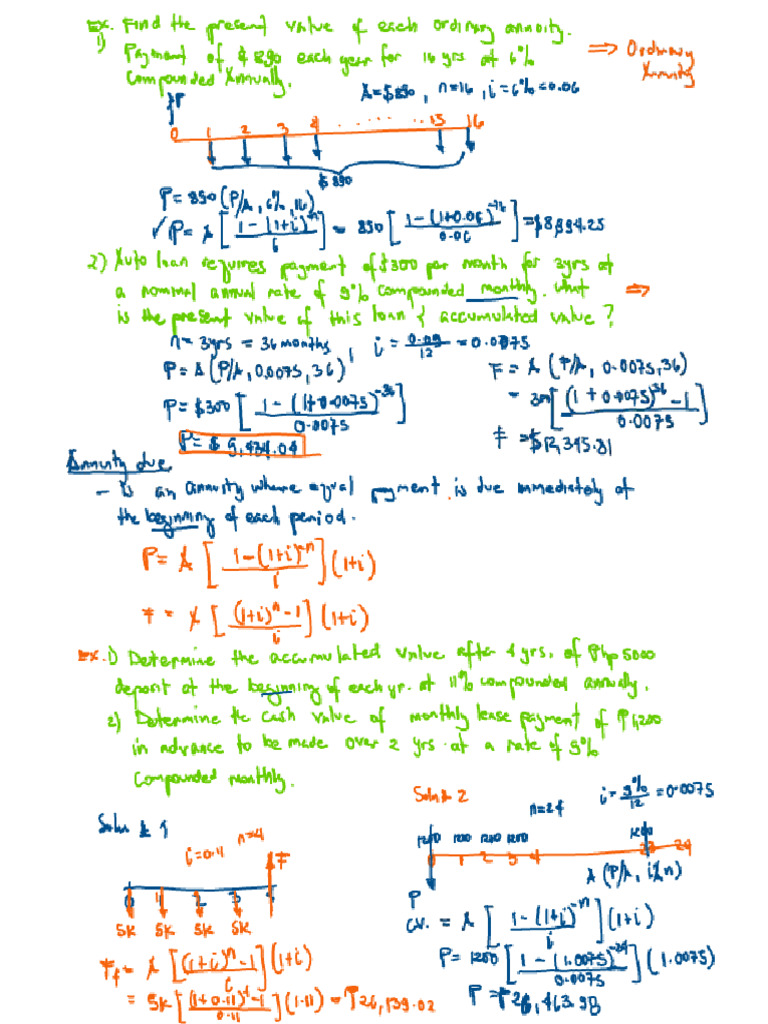 Ex. Find the present value of each ordinary annuity.
1) Payment of $890 each year for 16 yrs at 6%
compounded Annually.
⇒ Ordinary
Annuity
A = $890, n=16, i=6%=0.06
P
0 1 2 3 4 ........ 15 16
$890
P = 890 (P/A, 6%, 16)
✓ P = A [ 1-(1+i)^-n / i ] = 890 [ 1-(1+0.06)^-16 / 0.06 ] = $8,994.25
2) Auto loan requires payment of $300 per month for 3yrs at
a nominal annual rate of 9% compounded monthly. What ⇒
is the present value of this loan & accumulated value?
n = 3yrs = 36 months, i = 0.09/12 = 0.0075
P = A (P/A, 0.0075, 36)
P = $300 [ 1-(1+0.0075)^-36 / 0.0075 ]
P = $9,434.04
F = A (P/A, 0.0075, 36)
= 300 [ (1+0.0075)^36 - 1 / 0.0075 ]
F = $12,345.81
Annuity due
- is an annuity where equal payment is due immediately at
the beginning of each period.
P = A [ 1-(1+i)^-n / i ] (1+i)
F = A [ (1+i)^n - 1 / i ] (1+i)
Ex. 1) Determine the accumulated value after 4 yrs. of Php 5000
deposit at the beginning of each yr. at 11% compounded annually.
2) Determine the cash value of monthly lease payment of ₱1,200
in advance to be made over 2 yrs. at a rate of 9%
compounded monthly.
Soln # 1
i=0.11 n=4
F
0 1 2 3 4
5K 5K 5K 5K
F₄ = A [ (1+i)^n - 1 / i ] (1+i)
= 5K [ (1+0.11)^4 - 1 / 0.11 ] (1.11) = ₱26,139.02
Soln # 2
n=24
i = 9%/12 = 0.0075
1200 1200 1200 1200 1200
0 1 2 3 4 23 24
A (P/A, i%, n)
P
C.V. = A [ 1-(1+i)^-n / i ] (1+i)
P = 1200 [ 1-(1.0075)^-24 / 0.0075 ] (1.0075)
P = ₱26,463.98